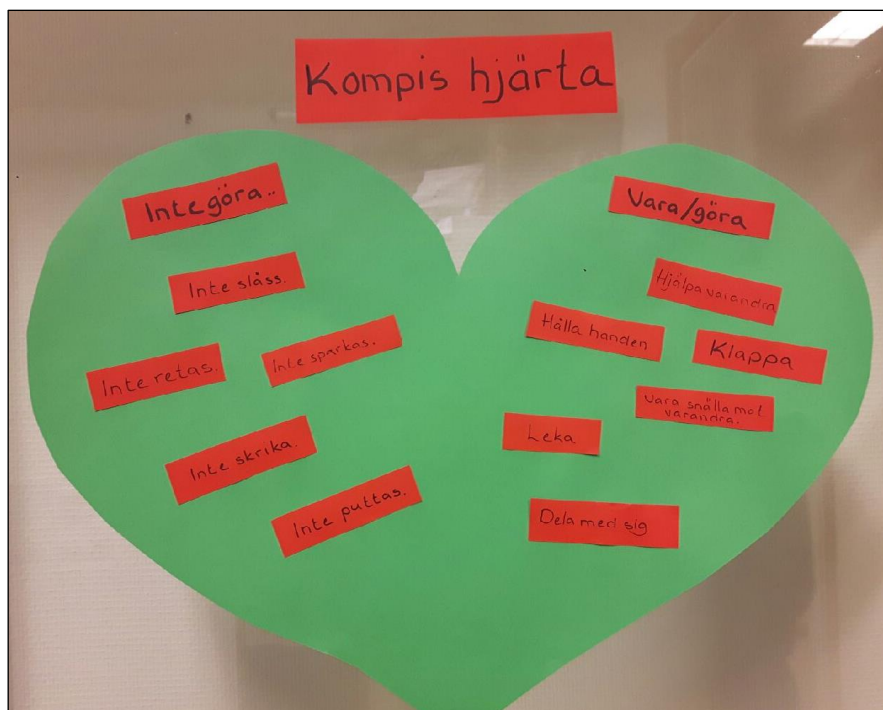 Kompis hjärta
Inte göra..
Inte slåss.
Inte retas.
Inte sparkas.
Inte skrika.
Inte puttas.
Vara/göra
Hjälpa varandra
Hålla handen
Klappa
Vara snälla mot
varandra.
Leka
Dela med sig